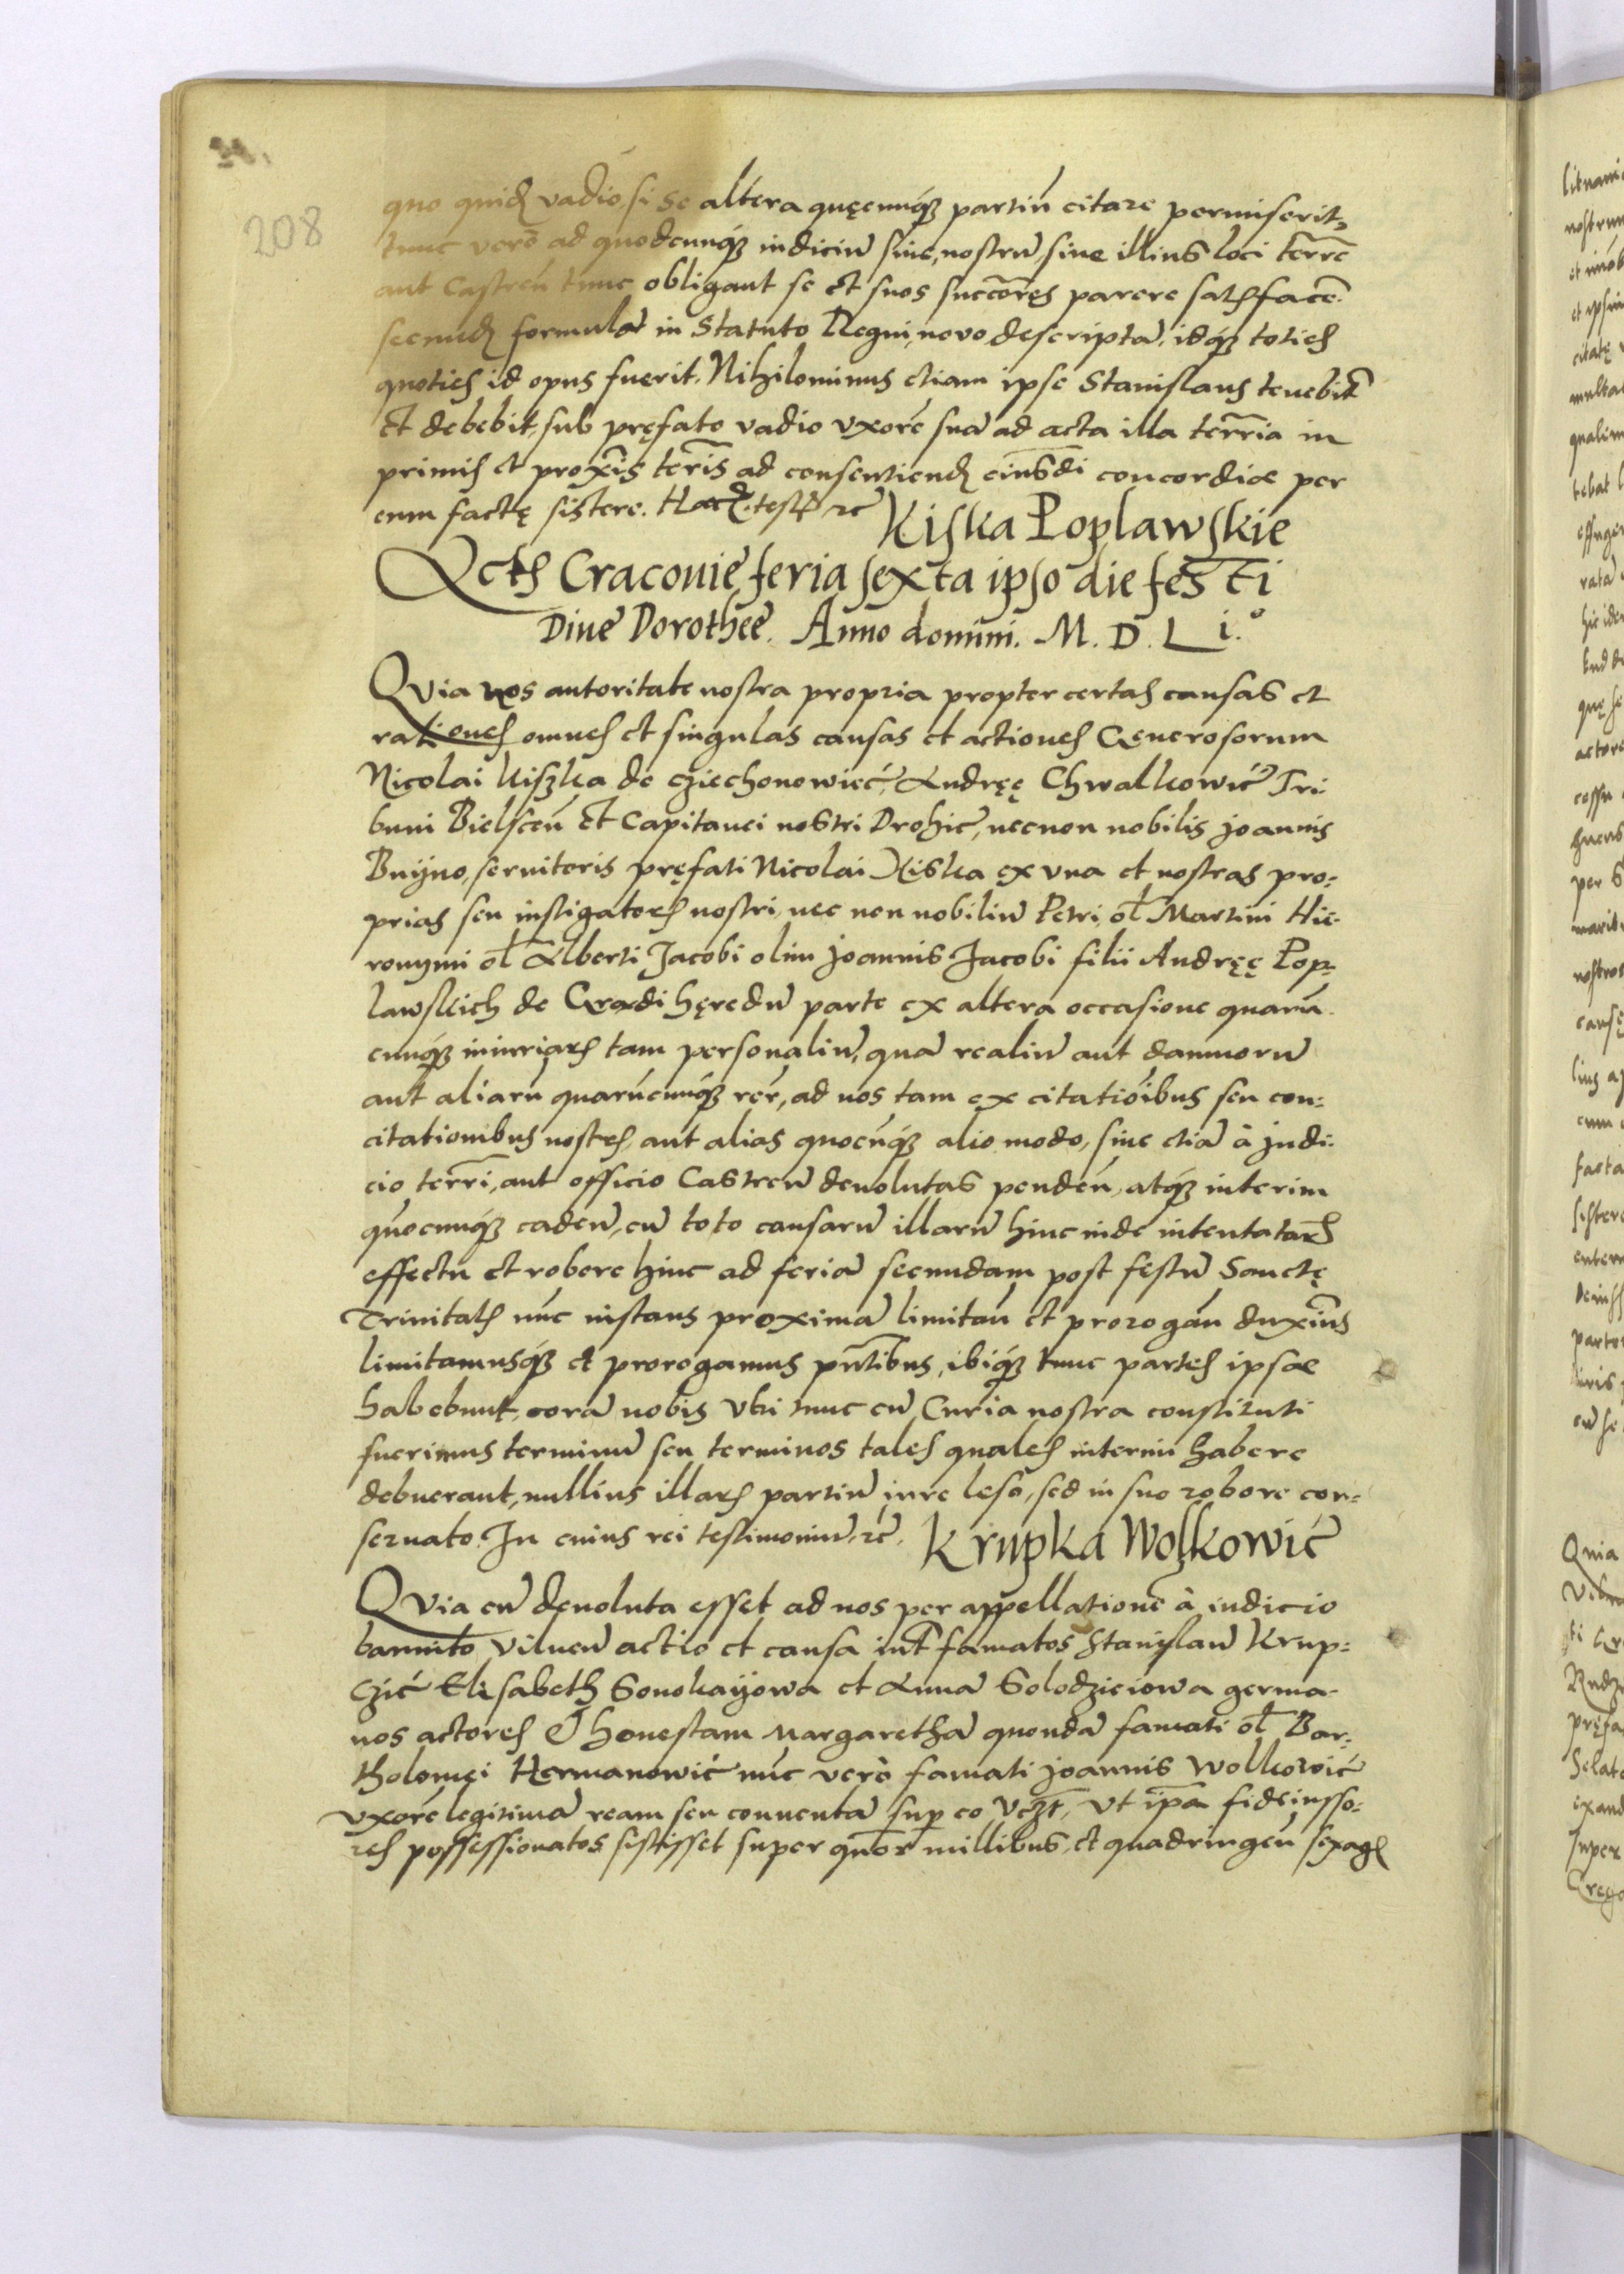 208
quo quid vadio, si se altera quęcunq́ partiū citare permiserit,
tunc verō ad quodcunq́ iudiciū siue, nostrū, siue illius loci terrē
aut Castreń tunc obligant se et suos succōres parere satisfacē.
secund formulā in Statuto Regni, novo descriptā, idq́ toties
quoties id opus fuerit. Nihilominus etiam ipse Stanislaus tenebit
et debebit, sub pręfato vadio vxorē suā ad acta illa terria in
primis et proxis teris ad consentiend eiusdi concordiae per
eum factę sistere. Hac test rc Kiska Poplawskie
Acts Cracouie feria sexta ipso die festi
Diue Dorothee. Anno domini. M. D. L i.o
Quia nos autoritate nostra propria propter certas causas et
rationes omnes et singulas causas et actiones Generosorum
Nicolai kiszka de cziechonowieć, Andręę Chwalkowić Tri-
buni Bielsceń et Capitanei nostri Drohić, necnon nobilis joannis
Buyno, seruitoris pręfati Nicolai Kiska ex vna et nostras pro=
prias seu instigatores nostri, nec non nobiliū Petri ol Martini Hie-
ronymi ol Alberti Jacobi olim joannis Jacobi filii Andręę Pop-
lawskich de Grodi hęredū parte ex altera occasione quarū
cunq́ iniuriars tam personaliū, quā realiū aut damnorū
aut aliarū quarūcunq́ rer, ad nos tam ex citatioibus seu con=
citationibus nostrs, aut alias quocūq́ alio modo, siue etiā à judi-
cio terri, aut officio Castreń deuolutas pendeń, atq́ interim
quocunq́ cadeń, cū toto causarū illarū hinc inde intentatars
effectu et robore hinc ad feriā secundam post festū Sanctę
Trinitats nūc instans proximā limitań et prorogań duxims
limitamusq́ et prorogamus pntibus, ibiq́ tunc partes ipsae
habebunt, corā nobis vbi tunc cū Curia nostra constituti
fuerimus terminū seu terminos tales quales interim habere
debuerant, nullius illars partiū iure leso, sed in suo robore con=
seruato. In cuius rei testimoniū, rc. Krupka Wolkowić
Quia cū deuoluta esset ad nos per appellationē à iudicio
bannito vilneń actio et causa int famatos Stanislaū Krup=
czić Elisabeth Sonokayowa et Annā Solodzieiowa germa-
nos actores & honestam Margarethā quondā famati ol Bar-
tholomęi Hermanowić nūc verò famati joannis Wolkowić
vxorē legitimā ream seu conuentā sup eo vczt, vt ipa fideiusso=
res possessionatos sistisset super quor millibus et quadringeń sexags